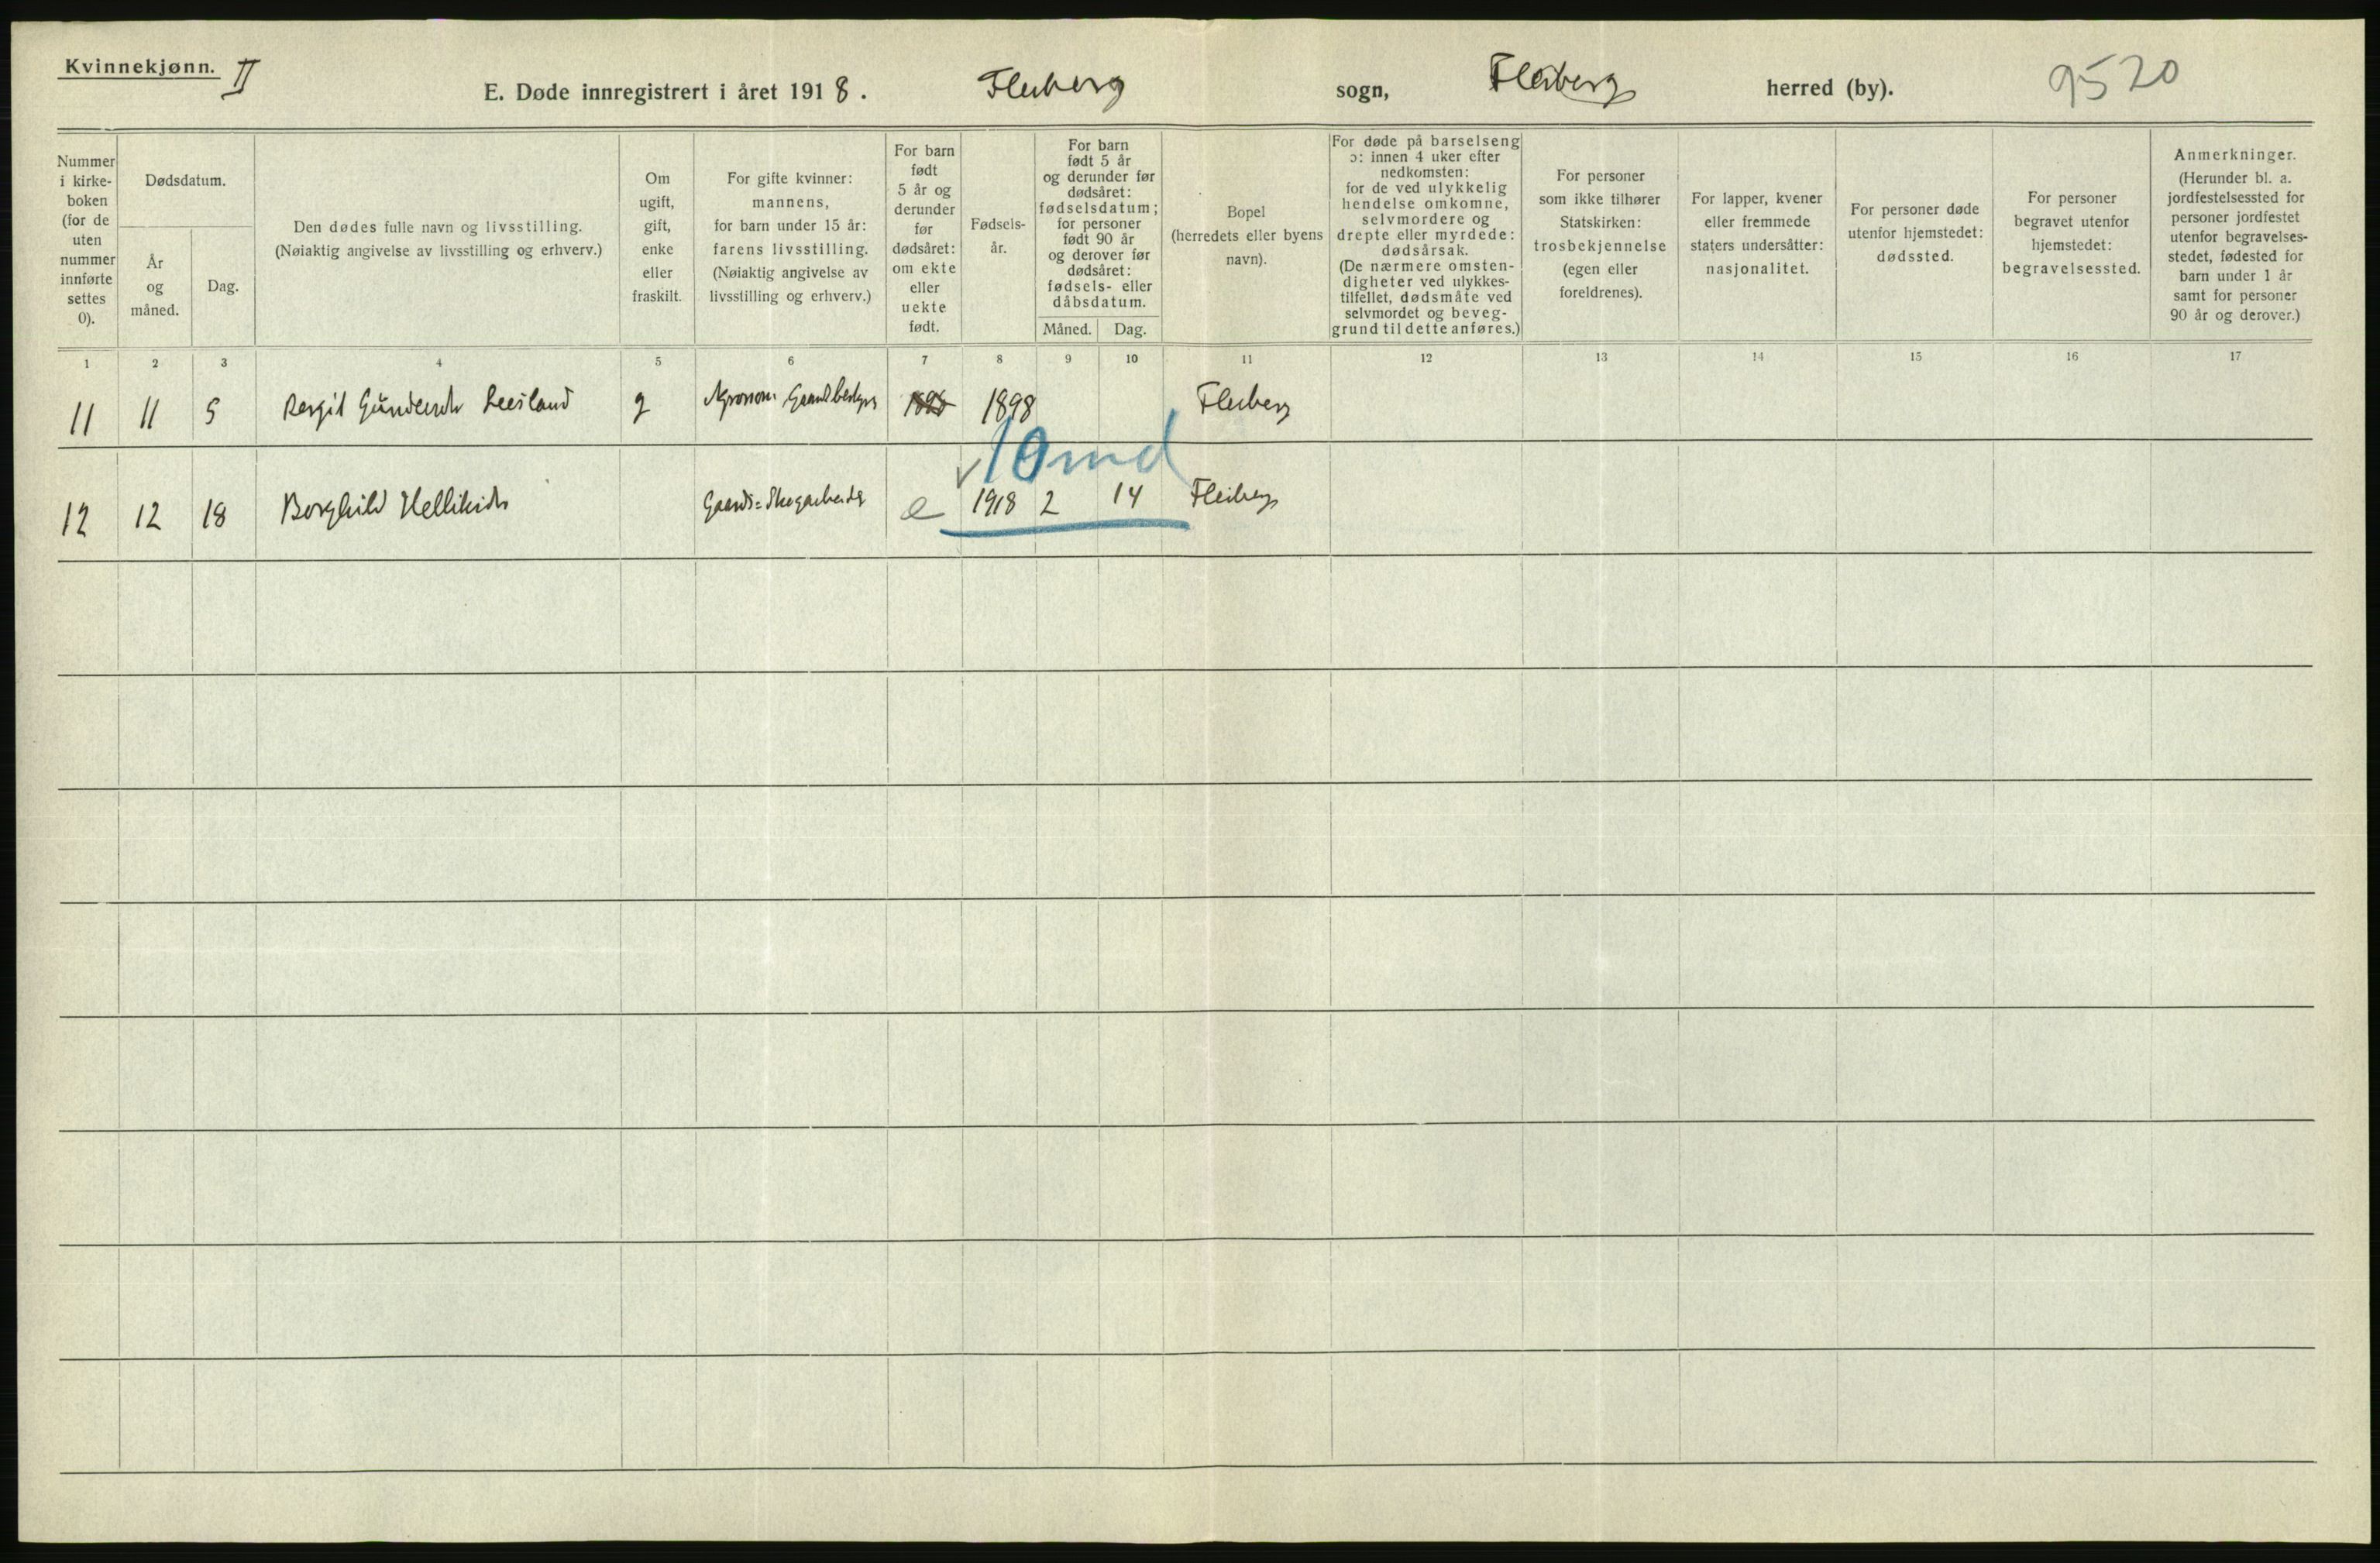 Kvinnekjønn. II
E. Døde innregistrert i året 1918. Flesberg sogn, Flesberg herred (by). 9520
Nummer
i kirke-
boken
(for de
uten
nummer
innførte
settes
0).
Dødsdatum.
År
og
måned.
Dag.
Den dødes fulle navn og livsstilling.
(Nøiaktig angivelse av livsstilling og erhverv.)
Om
ugift,
gift,
enke
eller
fraskilt.
For gifte kvinner:
mannens,
for barn under 15 år:
farens livsstilling.
(Nøiaktig angivelse av
livsstilling og erhverv.)
For barn
født
5 år og
derunder
før
dødsåret:
om ekte
eller
uekte
født.
Fødsels-
år.
For barn
født 5 år
og derunder før
dødsåret:
fødselsdatum;
for personer
født 90 år
og derover før
dødsåret:
fødsels- eller
dåbsdatum.
Måned. Dag.
Bopel
(herredets eller byens
navn).
For døde på barselseng
ɔ: innen 4 uker efter
nedkomsten:
for de ved ulykkelig
hendelse omkomne,
selvmordere og
drepte eller myrdede:
dødsårsak.
(De nærmere omsten-
digheter ved ulykkes-
tilfellet, dødsmåte ved
selvmordet og beveg-
grund til dette anføres.)
For personer
som ikke tilhører
Statskirken:
trosbekjennelse
(egen eller
foreldrenes).
For lapper, kvener
eller fremmede
staters undersåtter:
nasjonalitet.
For personer døde
utenfor hjemstedet:
dødssted.
For personer
begravet utenfor
hjemstedet:
begravelsessted.
Anmerkninger.
(Herunder bl. a.
jordfestelsessted for
personer jordfestet
utenfor begravelses-
stedet, fødested for
barn under 1 år
samt for personer
90 år og derover.)
1 2 3 4 5 6 7 8 9 10 11 12 13 14 15 16 17
11 11 5 Gundersdr g Agronom 1898 Flesberg
10 md
12 12 18 Borghild Helliksdr Gaards= Skogarbeider e 1918 2 14 Flesberg